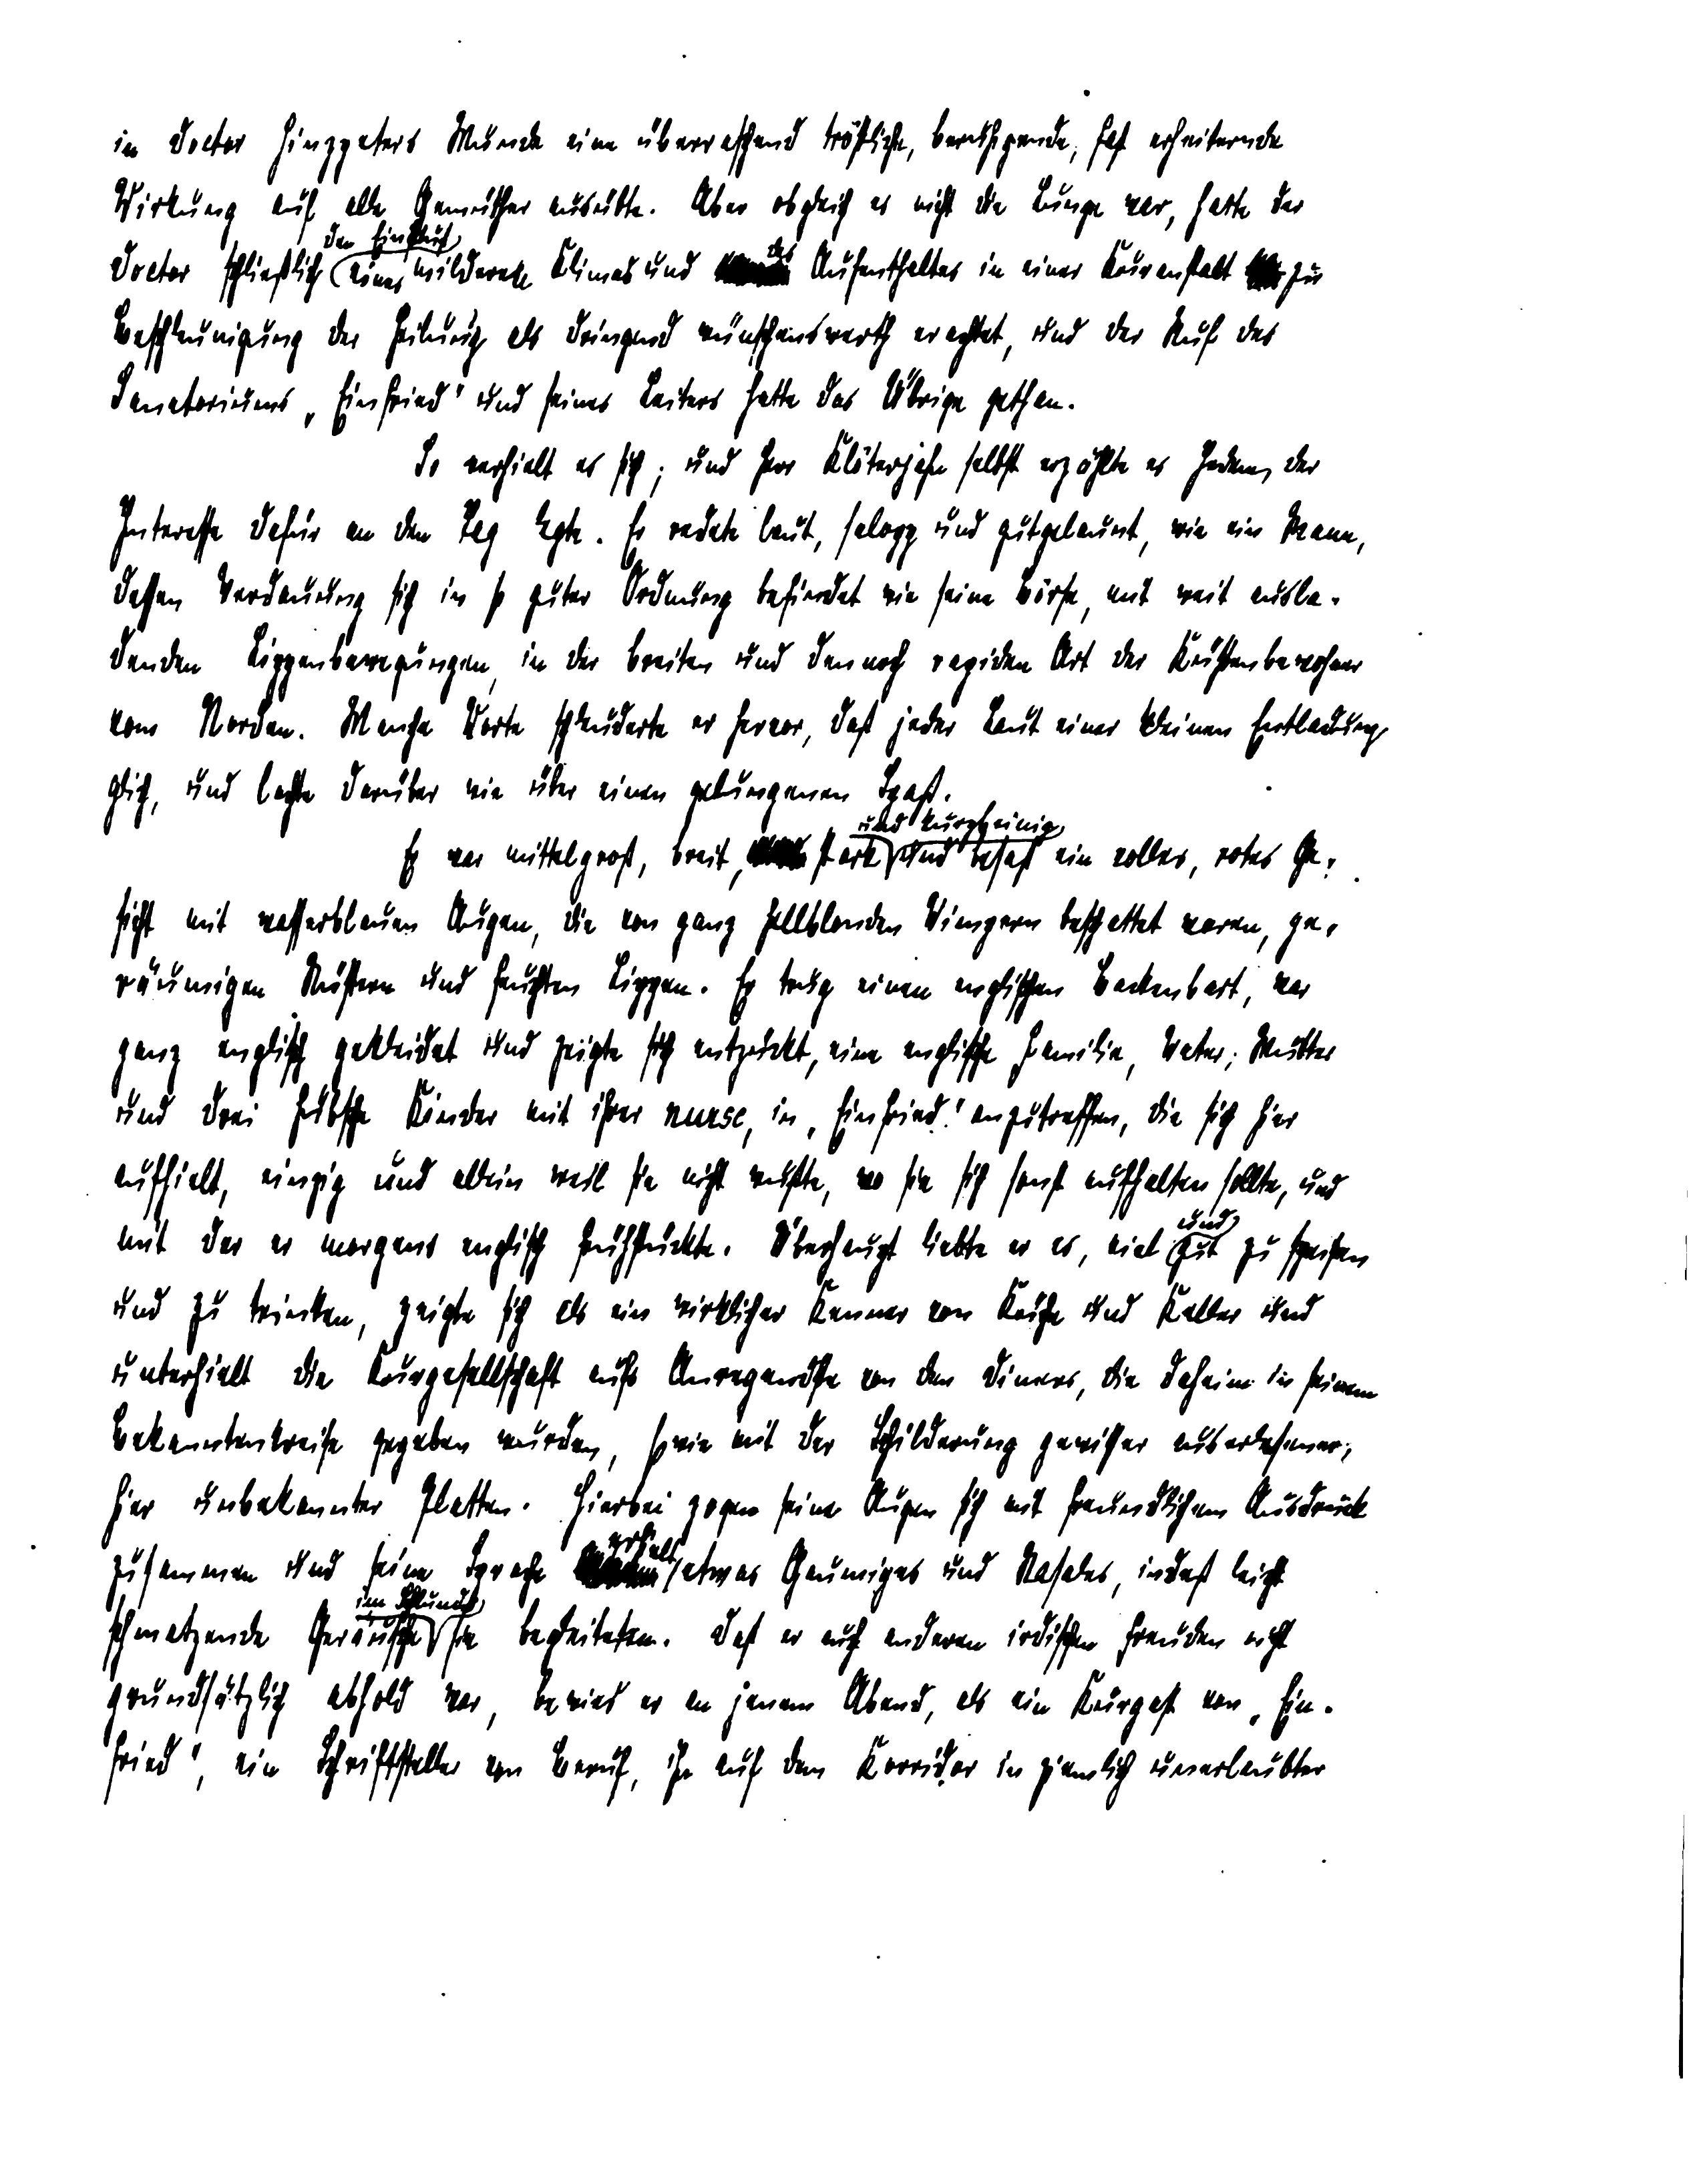 in Doctor Hinzpeters Munde eine überraschend tröstliche, beruhigende, fast erheiternde
Wirkung auf alle Gemüther ausübte. Aber obgleich es nicht die Lunge war, hatte der
Doctor schließlich den Einfluß eines milderen Klimas und des Aufenthaltes in einer Kuranstalt zur
Beschleunigung der Heilung als dringend wünschenswerth erachtet, und der Ruf des
Sanatoriums „Einfried" und seines Leiters hatte das Übrige gethan.
So verhielt es sich; und Herr Klöterjahn selbst erzählte es Jedem, der
Interesse dafür an den Tag legte. Er redete laut, salopp und gutgelaunt, wie ein Mann,
dessen Verdauung sich in so guter Ordnung befindet wie seine Börse, mit weit ausla-
denden Lippenbewegungen, in der breiten und dennoch rapiden Art der Küstenbewohner
vom Norden. Manche Worte schleuderte er hervor, daß jeder Laut einer kleinen Entladung
glich, und lachte darüber wie über einen gelungenen Spaß.
Er war mittelgroß, breit, stark und kurzbeinig und besaß ein volles, rotes Ge-
sicht mit wasserblauen Augen, die von ganz hellblonden Wimpern beschattet waren, ge-
räumigen Nüstern und feuchten Lippen. Er trug einen englischen Backenbart, war
ganz englisch gekleidet und zeigte sich entzückt, eine englische Familie, Vater, Mutter
und drei hübsche Kinder mit ihrer nurse, in „Einfried" anzutreffen, die sich hier
aufhielt, einzig und allein weil sie nicht wußte, wo sie sich sonst aufhalten sollte, und
mit der er morgens englisch frühstückte. Überhaupt liebte er es, viel und gut zu speisen
und zu trinken, zeigte sich als ein wirklicher Kenner von Küche und Keller und
unterhielt die Kurgesellschaft aufs Anregendste von den Diners, die daheim in seinem
Bekanntenkreise gegeben wurden, sowie mit der Schilderung gewisser auserlesener,
hier unbekannter Platten. Hierbei zogen seine Augen sich mit freundlichem Ausdruck
zusammen und seine Sprache erhielt etwas Gaumiges und Nasales, indeß leicht
schmatzende Geräusche im Schlunde sie begleiteten. Daß er auch anderen irdischen Freuden nicht
grundsätzlich abhold war, bewies er an jenem Abend, als ein Kurgast von „Ein-
fried", ein Schriftsteller von Beruf, ihn auf dem Korridor in ziemlich unerlaubter